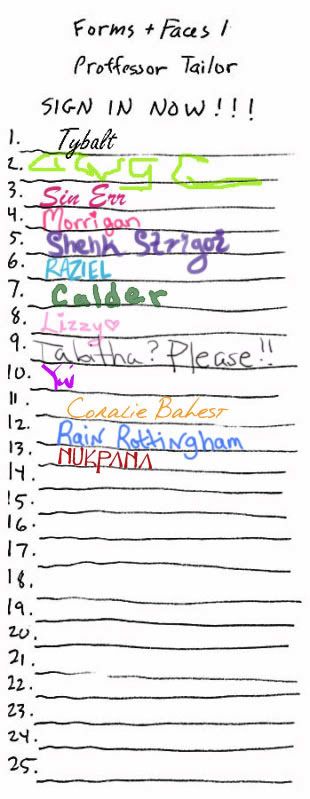 Forms + Faces 1
Proffessor Tailor
SIGN IN NOW!!!
1. Tybalt
2.
3. Sin Err
4. Morrigan
5. Strigoi
6. RAZIEL
7. Calder
8. Lizzy♡
9. Tabitha? Please!!
10.
11. Coralie
12. Rain Rottingham
13. NUKPANA
14.
15.
16.
17.
18.
19.
20.
21.
22.
23.
24.
25.